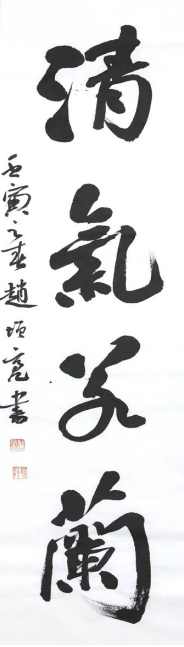 清氣若蘭
壬寅之春趙頊亮書